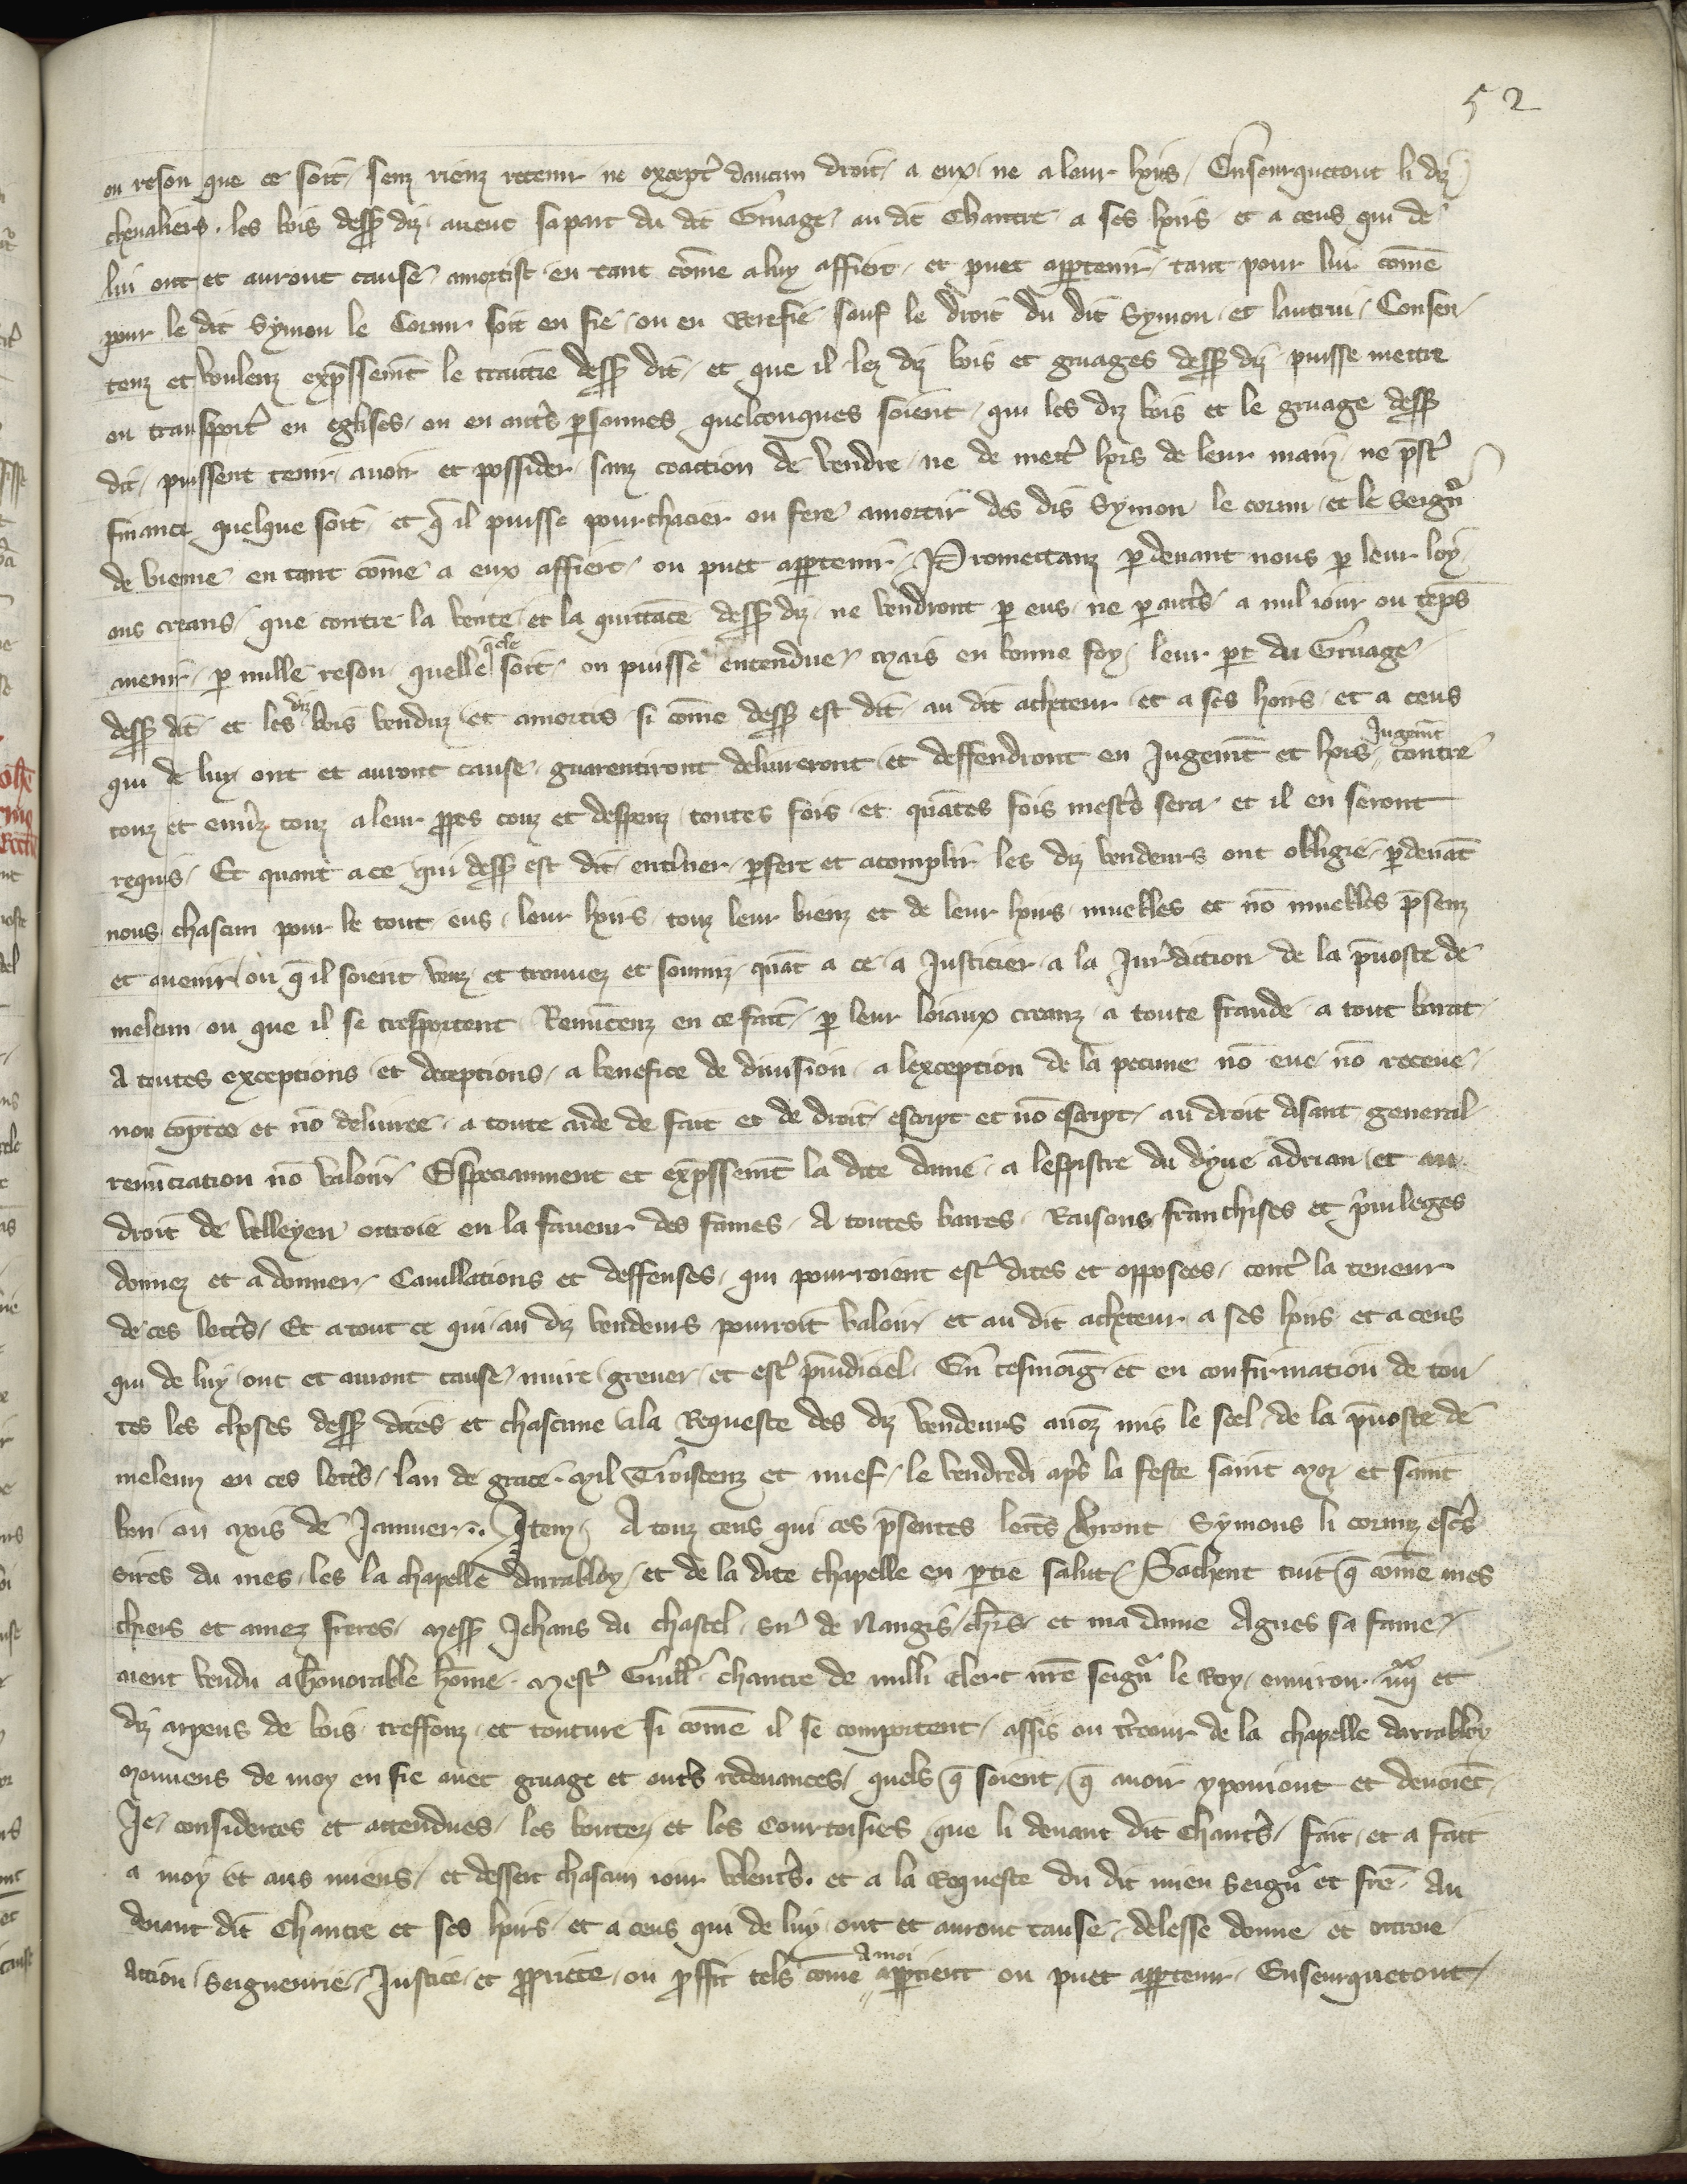 52
ou reson que ce soit, senz rienz retenir ne except̾ daucun droit, a eux ne a leur hoirs, Ensourquetout li diz
chevaliers, les bois dess⁹ diz avent sa part du dit Gruage, au dit Chantre a ses hoirs et a ceus qui de
lui ont et auront cause amortist en tant cōme a luy affiert, et puet apptenir, tant pour lui cōme
pour le dit Symon le Cornu soit en fié, ou en Rerefié sauf le droit du dit Symon et lautrui, Consen
tenz et voulenz exp̄ssemt̄ le chantre dess⁹ dit, et que il lez diz bois et gruages dess⁹ diz puisse mettre
ou transport̾ en eglises, ou en autr̾s psonnes quelconques soient, qui les diz bois et le gruage dess⁹
dit, puissent tenir avoir et possider, sanz coaction de vendre, ne de mett̾ hors de leur main, ne p̄st̾
finance quelque soit, et q̄ il puisse pourchacier ou fere amortir des dis Symon le cornu, et le Seign̾
de vienne en tant cōme a eux affiert, ou puet apptenir, Promettanz p devant nous p leur loy
aus creans, que contre la vente, et la quittāce dess⁹ diz, ne vendront p eus, ne p autr̾s, a nul iour ou tēps
avenir, p nulle reson quelle q̄le soit, ou puisse entendue, mais en bonne foy, leur pt du Gruage
dess⁹ dit et les diz bois venduz et amortis, si cōme dess⁹ est dit, au dit acheteur et a ses hoirs, et a ceus
qui de luy ont et auront cause, guarentiront deliureront et deffendront en Jugemt̄ et hors Jugemt̄ contre
touz et env̾z touz a leur pp̄es couz et despenz, toutes fois et quātes fois mest̾s sera, et il en seront
requis, Et quant a ce qui dess⁹ est dit, ent̾iner, pfere et acomplir les diz vendeurs ont obligié, p devāt
nous chascun pour le tout, eus, leur hoirs, touz leur bienz et de leur hoirs, muebles et nō muebles p̄senz
et avenir, ou q̄ il soient venz et trouuez et soumiz, quāt a ce, a Justicier, a la Jur̾diction de la p̄voste de
meleun ou que il se tresportent, Renūcenz en ce fait, p leur loiaux creanz, a toute fraude, a tout barat,
A toutes exceptions et deceptions, a benefice de diuision, a lexception de la pecune nō eue, nō receue,
non cōptee et nō deliuree, a toute aide de fait et de droit, escript et nō escript, au droit disant general
renūciation nō valoir, Especiaument et exp̄ssemt̄ la dite dame, a lespistre du dyve adrian, et au
droit de velleyen otroié en la faueur des fames, A toutes barres, Raisons, franchises et p̾uileges
donnez et a donner, Cauillations et deffenses, qui pourroient est̾ dites et opposees, cont̾ la teneur
de ces lett̾s, Et a tout ce qui au diz vendeurs pourroit valoir, et au dit acheteur a ses hoirs et a ceus
qui de luy ont et auront cause, nuire, grever, et est̾ p̄iudiciel, En tesmoig̾ et en confirmation de tou
tes les choses dess⁹ dites et chascune a la Requeste des diz vendeurs avōz mis le seel de la p̄voste de
meleun en ces lett̾s, lan de grace, Mil Troiscenz et nuef, le vendredi ap̾s la feste saint mor et saint
bon ou mois de Januier.. Itenz, A touz ceus qui ces p̄sentes lett̾s verront Symons li cornuz esc̾s
sires du mes les la chapelle darrabloy, et de la dite chapelle en ptie salut, Sachent tuit q̄ cōme mes
chiers et amez freres, mess⁹ Jehans du chastel sir̾ de Nangis ch̾rs et ma dame Agnes sa fame,
aient vendu a honorable hōme mest̾ Guill̄ chantre de milli clerc nr̄e seign̾ le Roy, enuiron iiiixx et
diz arpens de bois treffonz et touture si cōme il se comportent, assis ou t̾reour de la chapelle darrabloy
mouuens de moy en fie auec gruage et autr̾s redeuances, quels q̄ soient, q̄ avoir y pouiont et devoiēt,
Je, considerees et attendues, les bontez et les Courtoisies que li devant dit Chantr̾s, fait et a fait
a moy et aus miens, et dessert chascun iour volent̾s, et a la Requeste du dit mien Seign̾ et fr̄e, Au
devant dit Chantre et ses hoirs, et a ceus qui de luy ont et auront cause, delesse donne et otroie
action, Seigneurie, Justice, et pp̄riete, ou p̄ffit tels come A moi apptient ou puet apptenir, Ensourquetout,